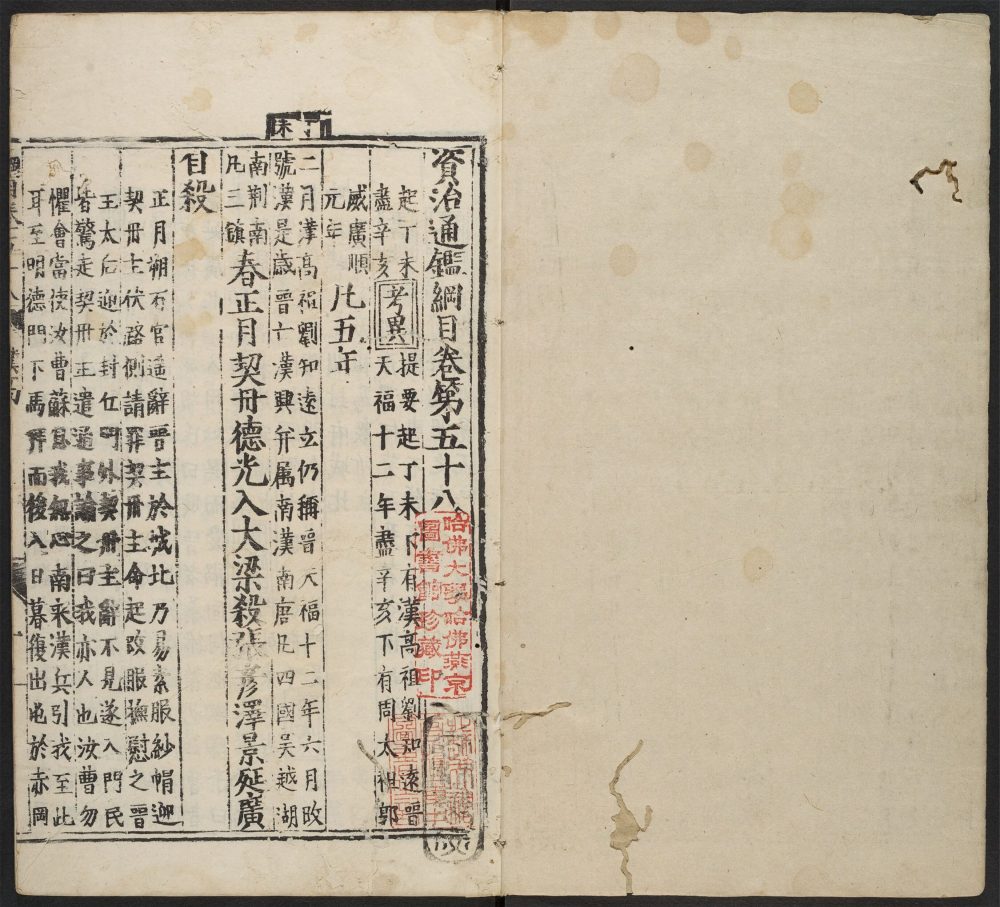 丁未
資治通鑑綱目卷第五十八
起丁未
盡辛亥
考異
提要起丁未下有漢高祖劉知遠晉
天福十二年盡辛亥下有周太祖郭
威廣順
元年
凡五年
二月漢高祖劉知遠立仍稱晉天福十二年六月改
號漢是歲晉亡漢興并属南漢南唐凡四國吳越湖
南荆南
凡三鎮
春正月契丹德光入大梁殺張彥澤景延廣
自殺
正月朔百官遥辭晉主於城北乃易素服紗帽迎
契丹主伏路側請罪契丹主命起改服撫慰之晉
王太后迎於封丘門外契丹主辭不見遂入門民
皆驚走契丹主遣通事諭之曰我亦人也汝曹勿
懼會當使汝曹蘇息我無心南来漢兵引我至此
耳至明德門下馬拜而後入日暮復出屯於赤岡
哈佛大學哈佛燕京
圖書館珍藏印